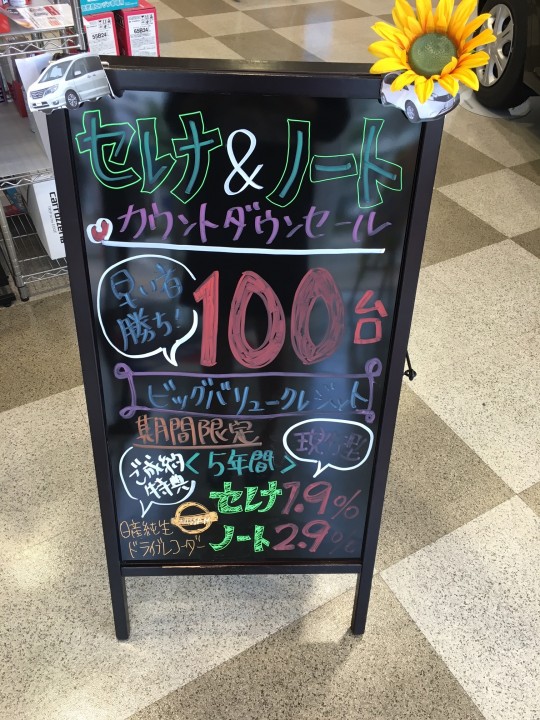 セレナ&ノート
カウントダウンセール
早い者
勝ち!
100台
ビッグバリュークレジット
期間限定
現行型
ご成約
特典
<5年間>
セレナ1.9%
ノート2.9%
日産純正
ドライブレコーダー